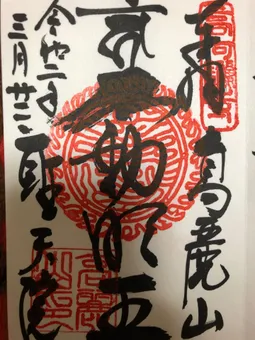 奉拝 高麗山
不動明王
聖天院
令和二年
三月廿二日
高麗山印